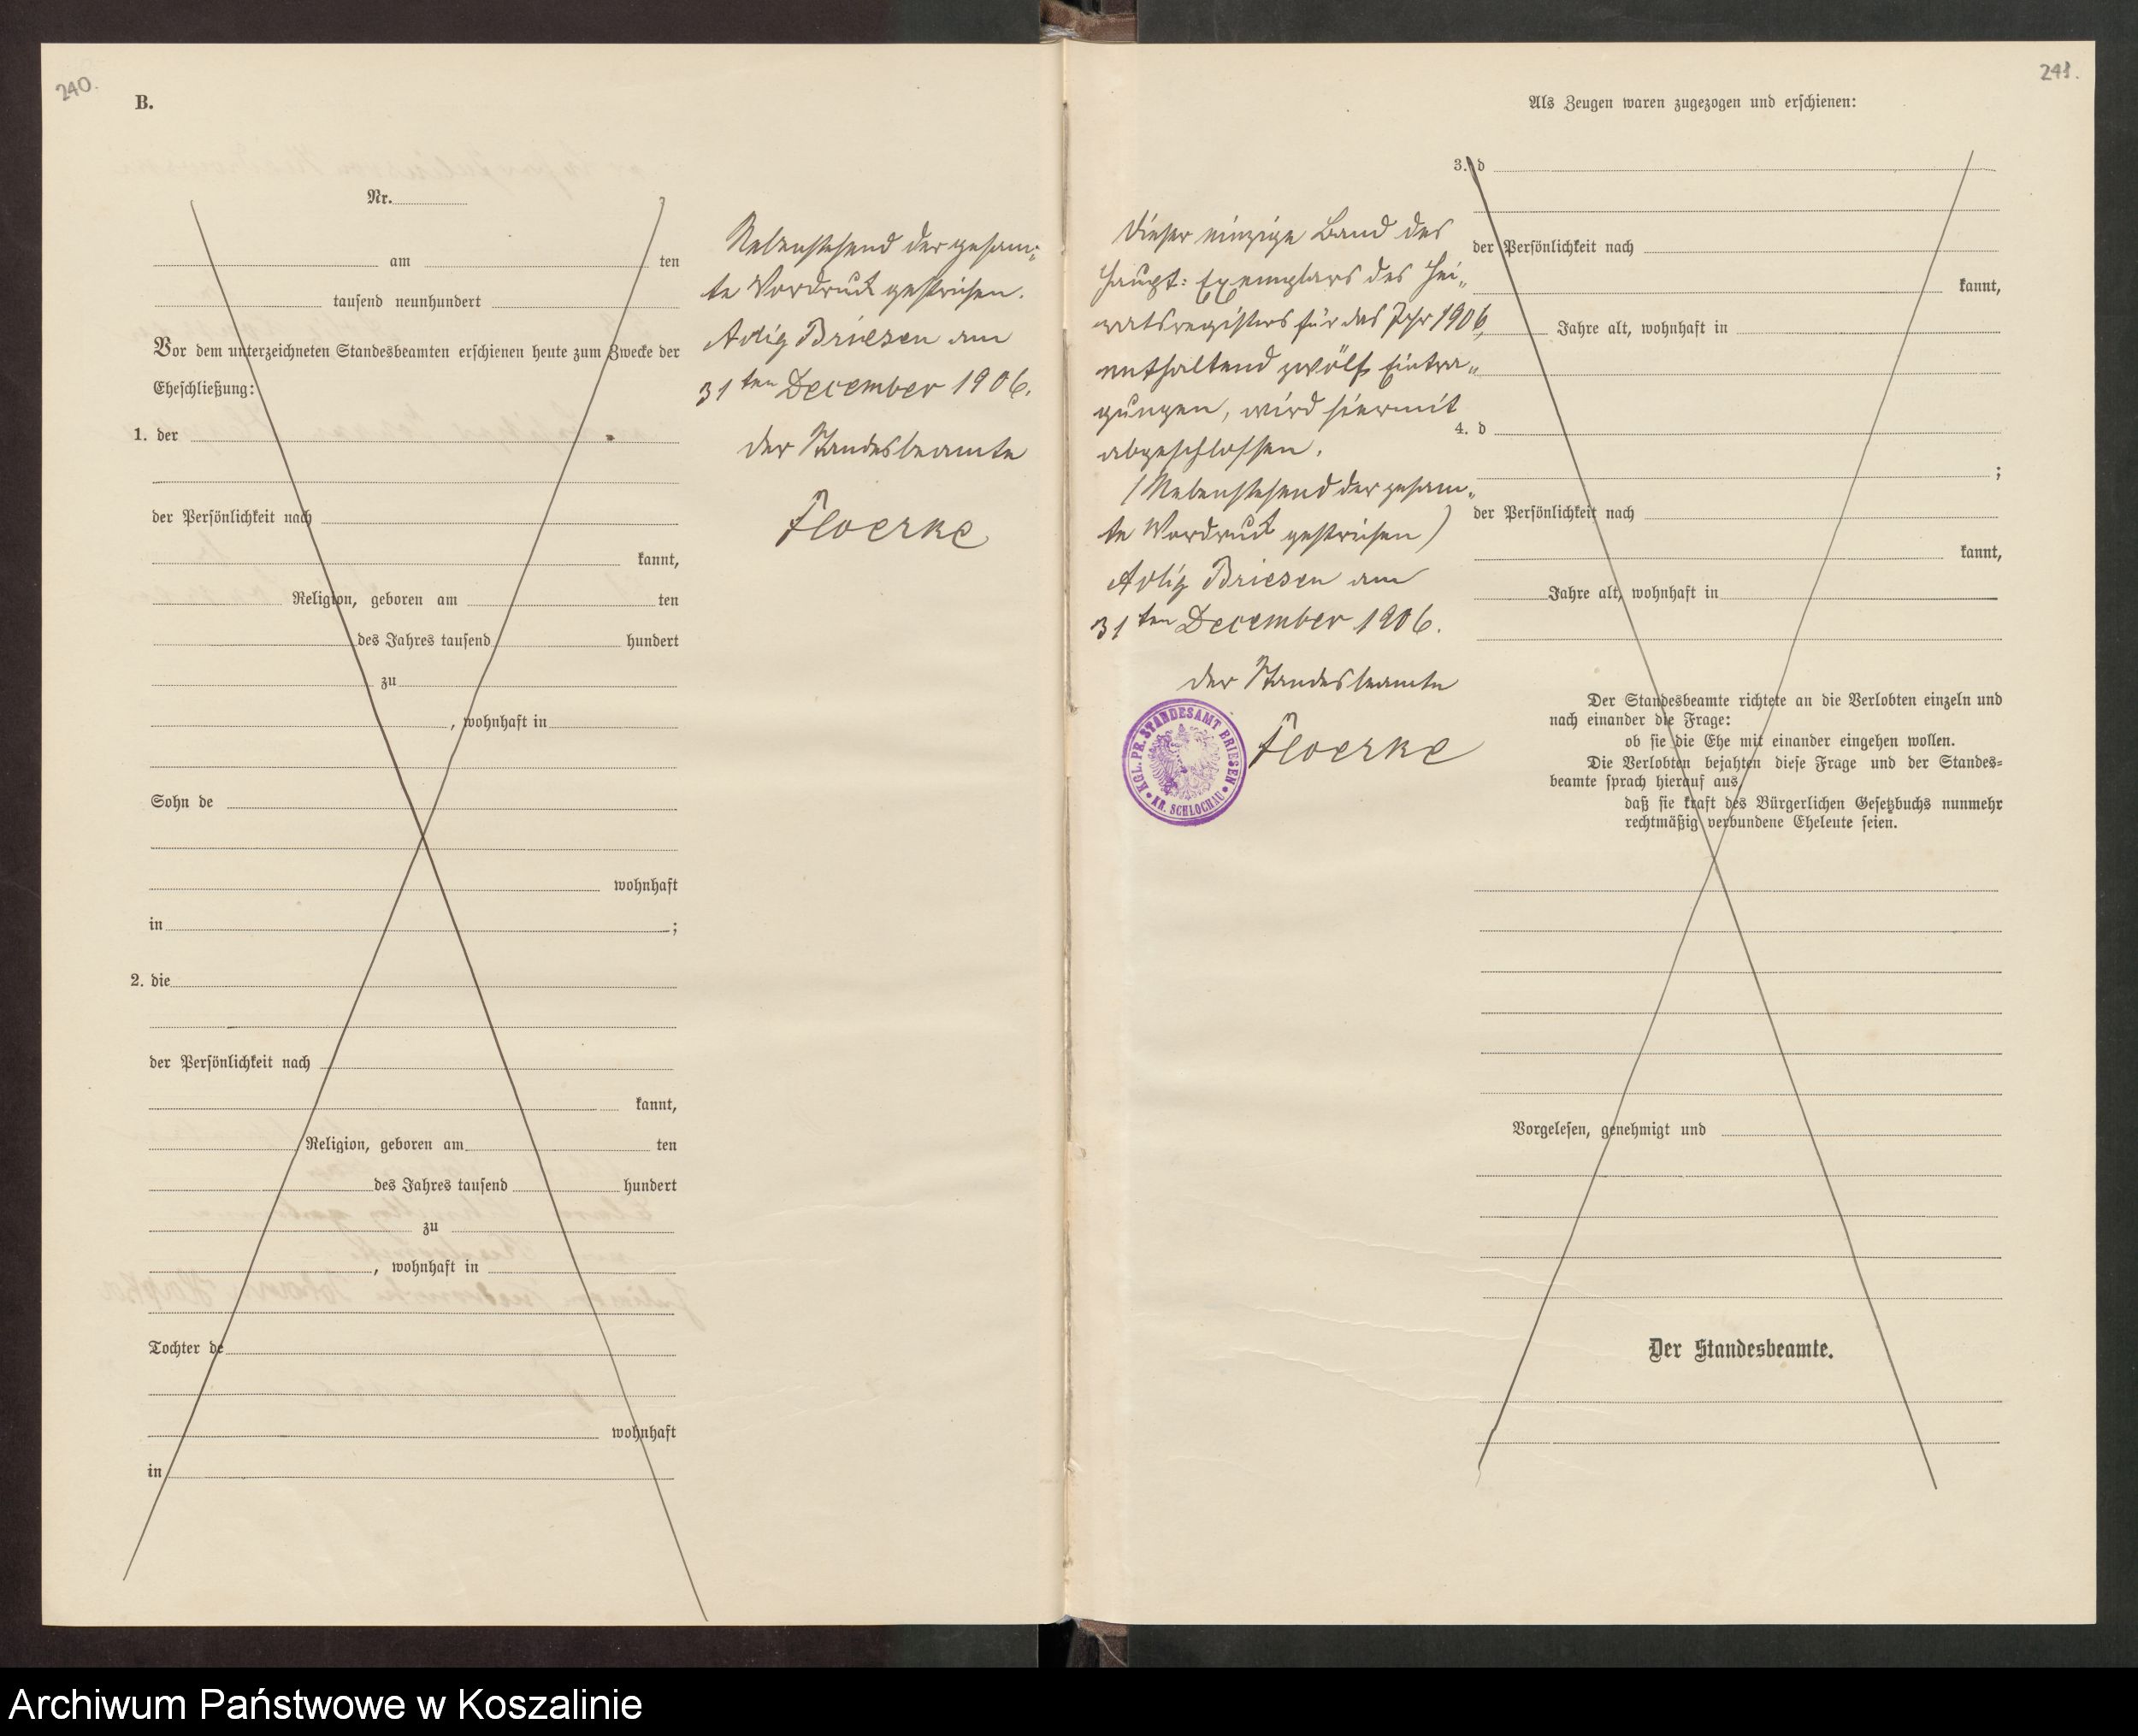 240.
B.
Nr.
am ten
tausend neunhundert
Vor dem unterzeichneten Standesbeamten erschienen heute zum Zwecke der
Eheschließung:
1. der
der Persönlichkeit nach
kannt,
Religion, geboren am ten
des Jahres tausend hundert
zu
, wohnhaft in
Sohn de
wohnhaft
in ;
2. die
der Persönlichkeit nach
kannt,
Religion, geboren am ten
des Jahres tausend hundert
zu
, wohnhaft in
Tochter de
wohnhaft
in
Nebenstehend der gesam=
te Vordruck gestrichen.
Adlig Briesen am
31ten December 1906.
Der Standesbeamte
Floerke
241.
Dieser einzige Band des
Haupt=Exemplars des Hei„
ratsregisters für das Jahr 1906,
enthaltend zwölf Eintra„
gungen, wird hiermit
abgeschlossen.
(Nebenstehend der gesam„
te Vordruck gestrichen)
Adlig Briesen am
31ten December 1906.
Der Standesbeamte
Floerke
KGL. PR. STANDESAMT BRIESEN
KR. SCHLOCHAU
Als Zeugen waren zugezogen und erschienen:
3. d
der Persönlichkeit nach
kannt,
Jahre alt, wohnhaft in
4. d
;
der Persönlichkeit nach
kannt,
Jahre alt, wohnhaft in
Der Standesbeamte richtete an die Verlobten einzeln und
nach einander die Frage:
ob sie die Ehe mit einander eingehen wollen.
Die Verlobten bejahten diese Frage und der Standes=
beamte sprach hierauf aus,
daß sie kraft des Bürgerlichen Gesetzbuchs nunmehr
rechtmäßig verbundene Eheleute seien.
Vorgelesen, genehmigt und
Der Standesbeamte.
Archiwum Państwowe w Koszalinie